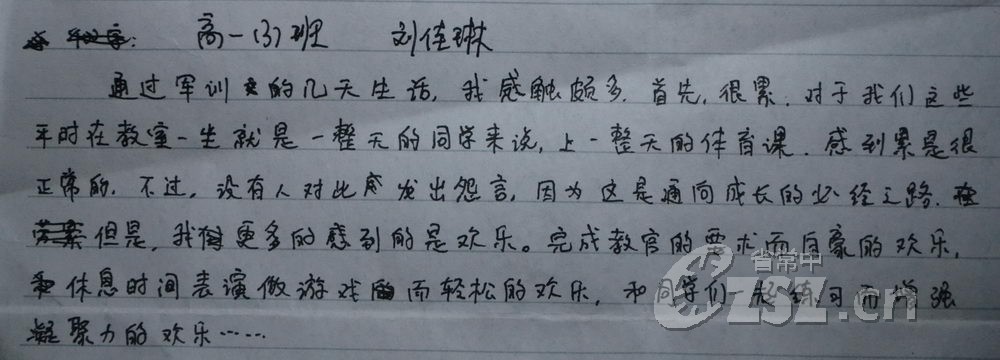 高一(3)班 刘佳琳
通过军训的几天生活,我感触颇多.首先,很累.对于我们这些
平时在教室一坐就是一整天的同学来说,上一整天的体育课.感到累是很
正常的.不过,没有人对此发出怨言,因为这是通向成长的必经之路.
但是,我更多的感到的是欢乐。完成教官的要求而自豪的欢乐,
休息时间表演做游戏而轻松的欢乐,和同学们一起练习而增强
凝聚力的欢乐……
省常中
CZSZ.cn